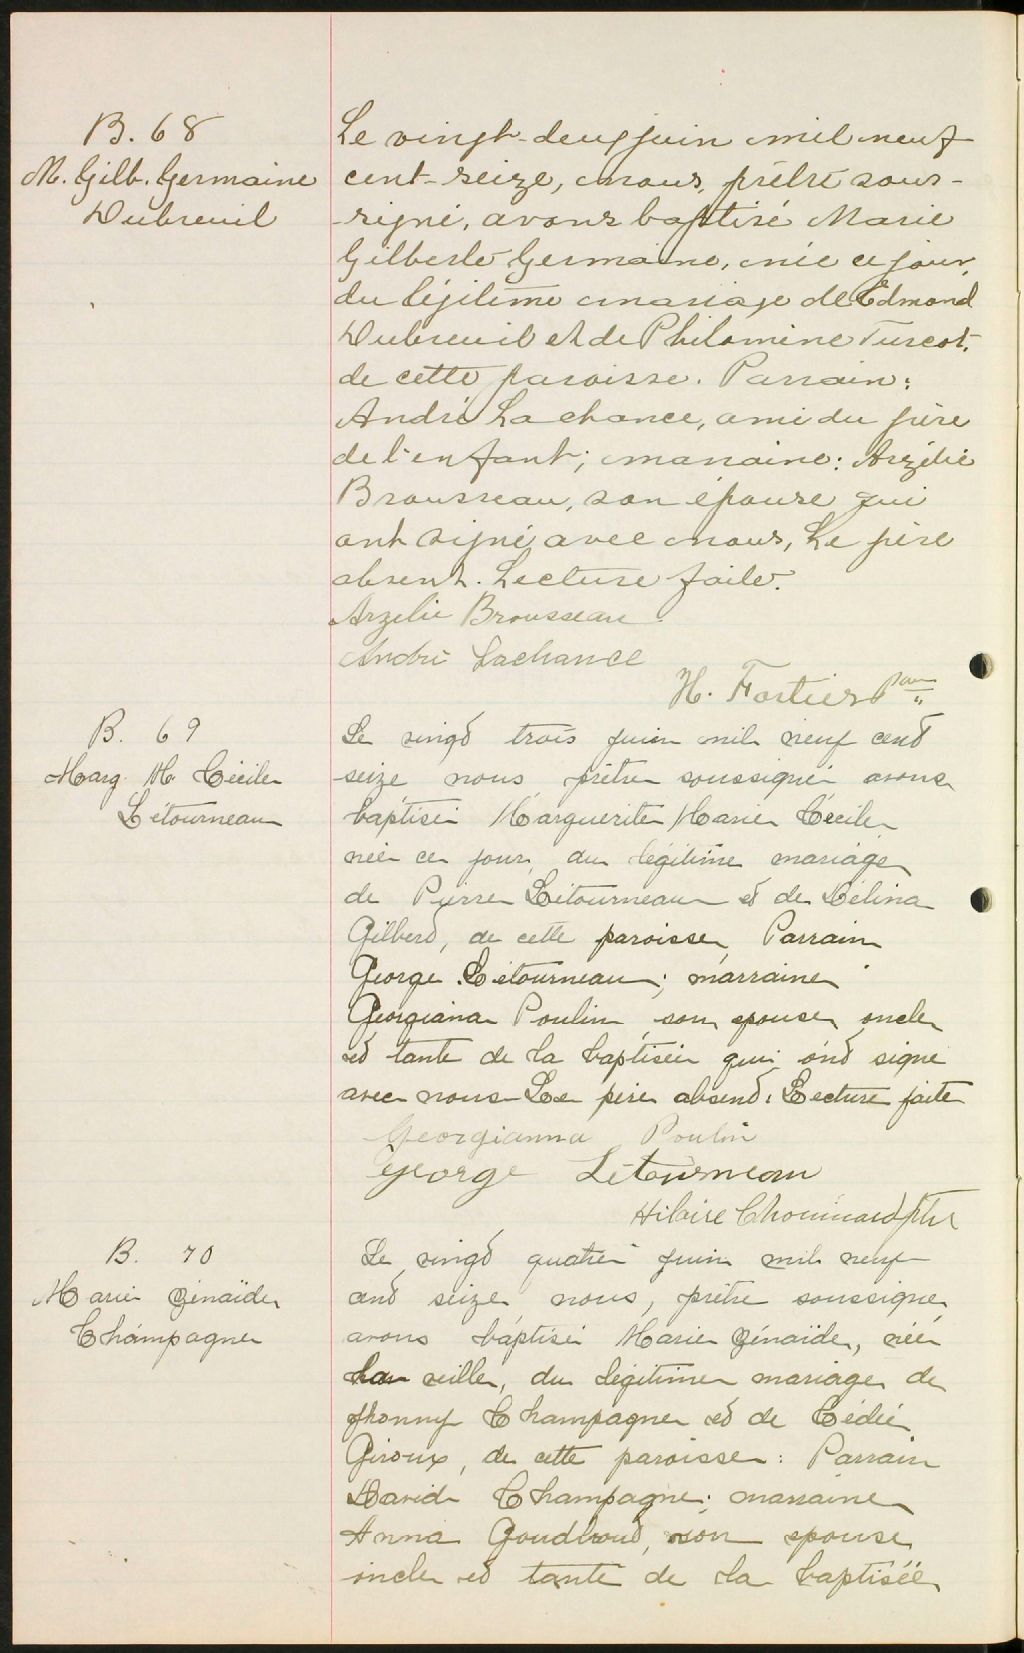 B. 68
M. Gilb. Germaine
Dubreuil
Le vingt-deux juin mil neuf
cent-seize, nous, prêtre sous-
signé, avons baptisé Marie
Gilberte Germaine, née ce jour,
du légitime mariage de Edmond
Dubreuil et de Philomène Turcot,
de cette paroisse. Parrain:
André Lachance, ami du père
de l'enfant; marraine: Arzélie
Brousseau, son épouse qui
ont signé avec nous, Le père
absent. Lecture faite.
Arzelie Brousseau
André Lachance
H. Fortier
B. 69
Marg. M. Cécile
Létourneau
Le vingt trois juin mil neuf cent
seize nous prêtre soussigné avons
baptisé Marguerite Marie Cécile
née ce jour, du légitime mariage
de Pierre Létourneau et de Délina
Gilbert, de cette paroisse, Parrain
George Létourneau; marraine
Georgiana Poulin son epouse oncle
et tante de la baptisée qui ont signé
avec nous Le père absent. Lecture faite
Georgianna Poulin
George Létourneau
Hilaire Chouinard ptre
B. 70
Marie Zénaïde
Champagne
Le vingt quatre juin mil neuf
cent seize nous, prêtre soussigné
avons baptisé Marie Zénaïde, née
la veille, du légitime mariage de
Jhonny Champagne et de
Giroux, de cette paroisse: Parrain
David Champagne; marraine
Anna son epouse
oncle et tante de la baptisée